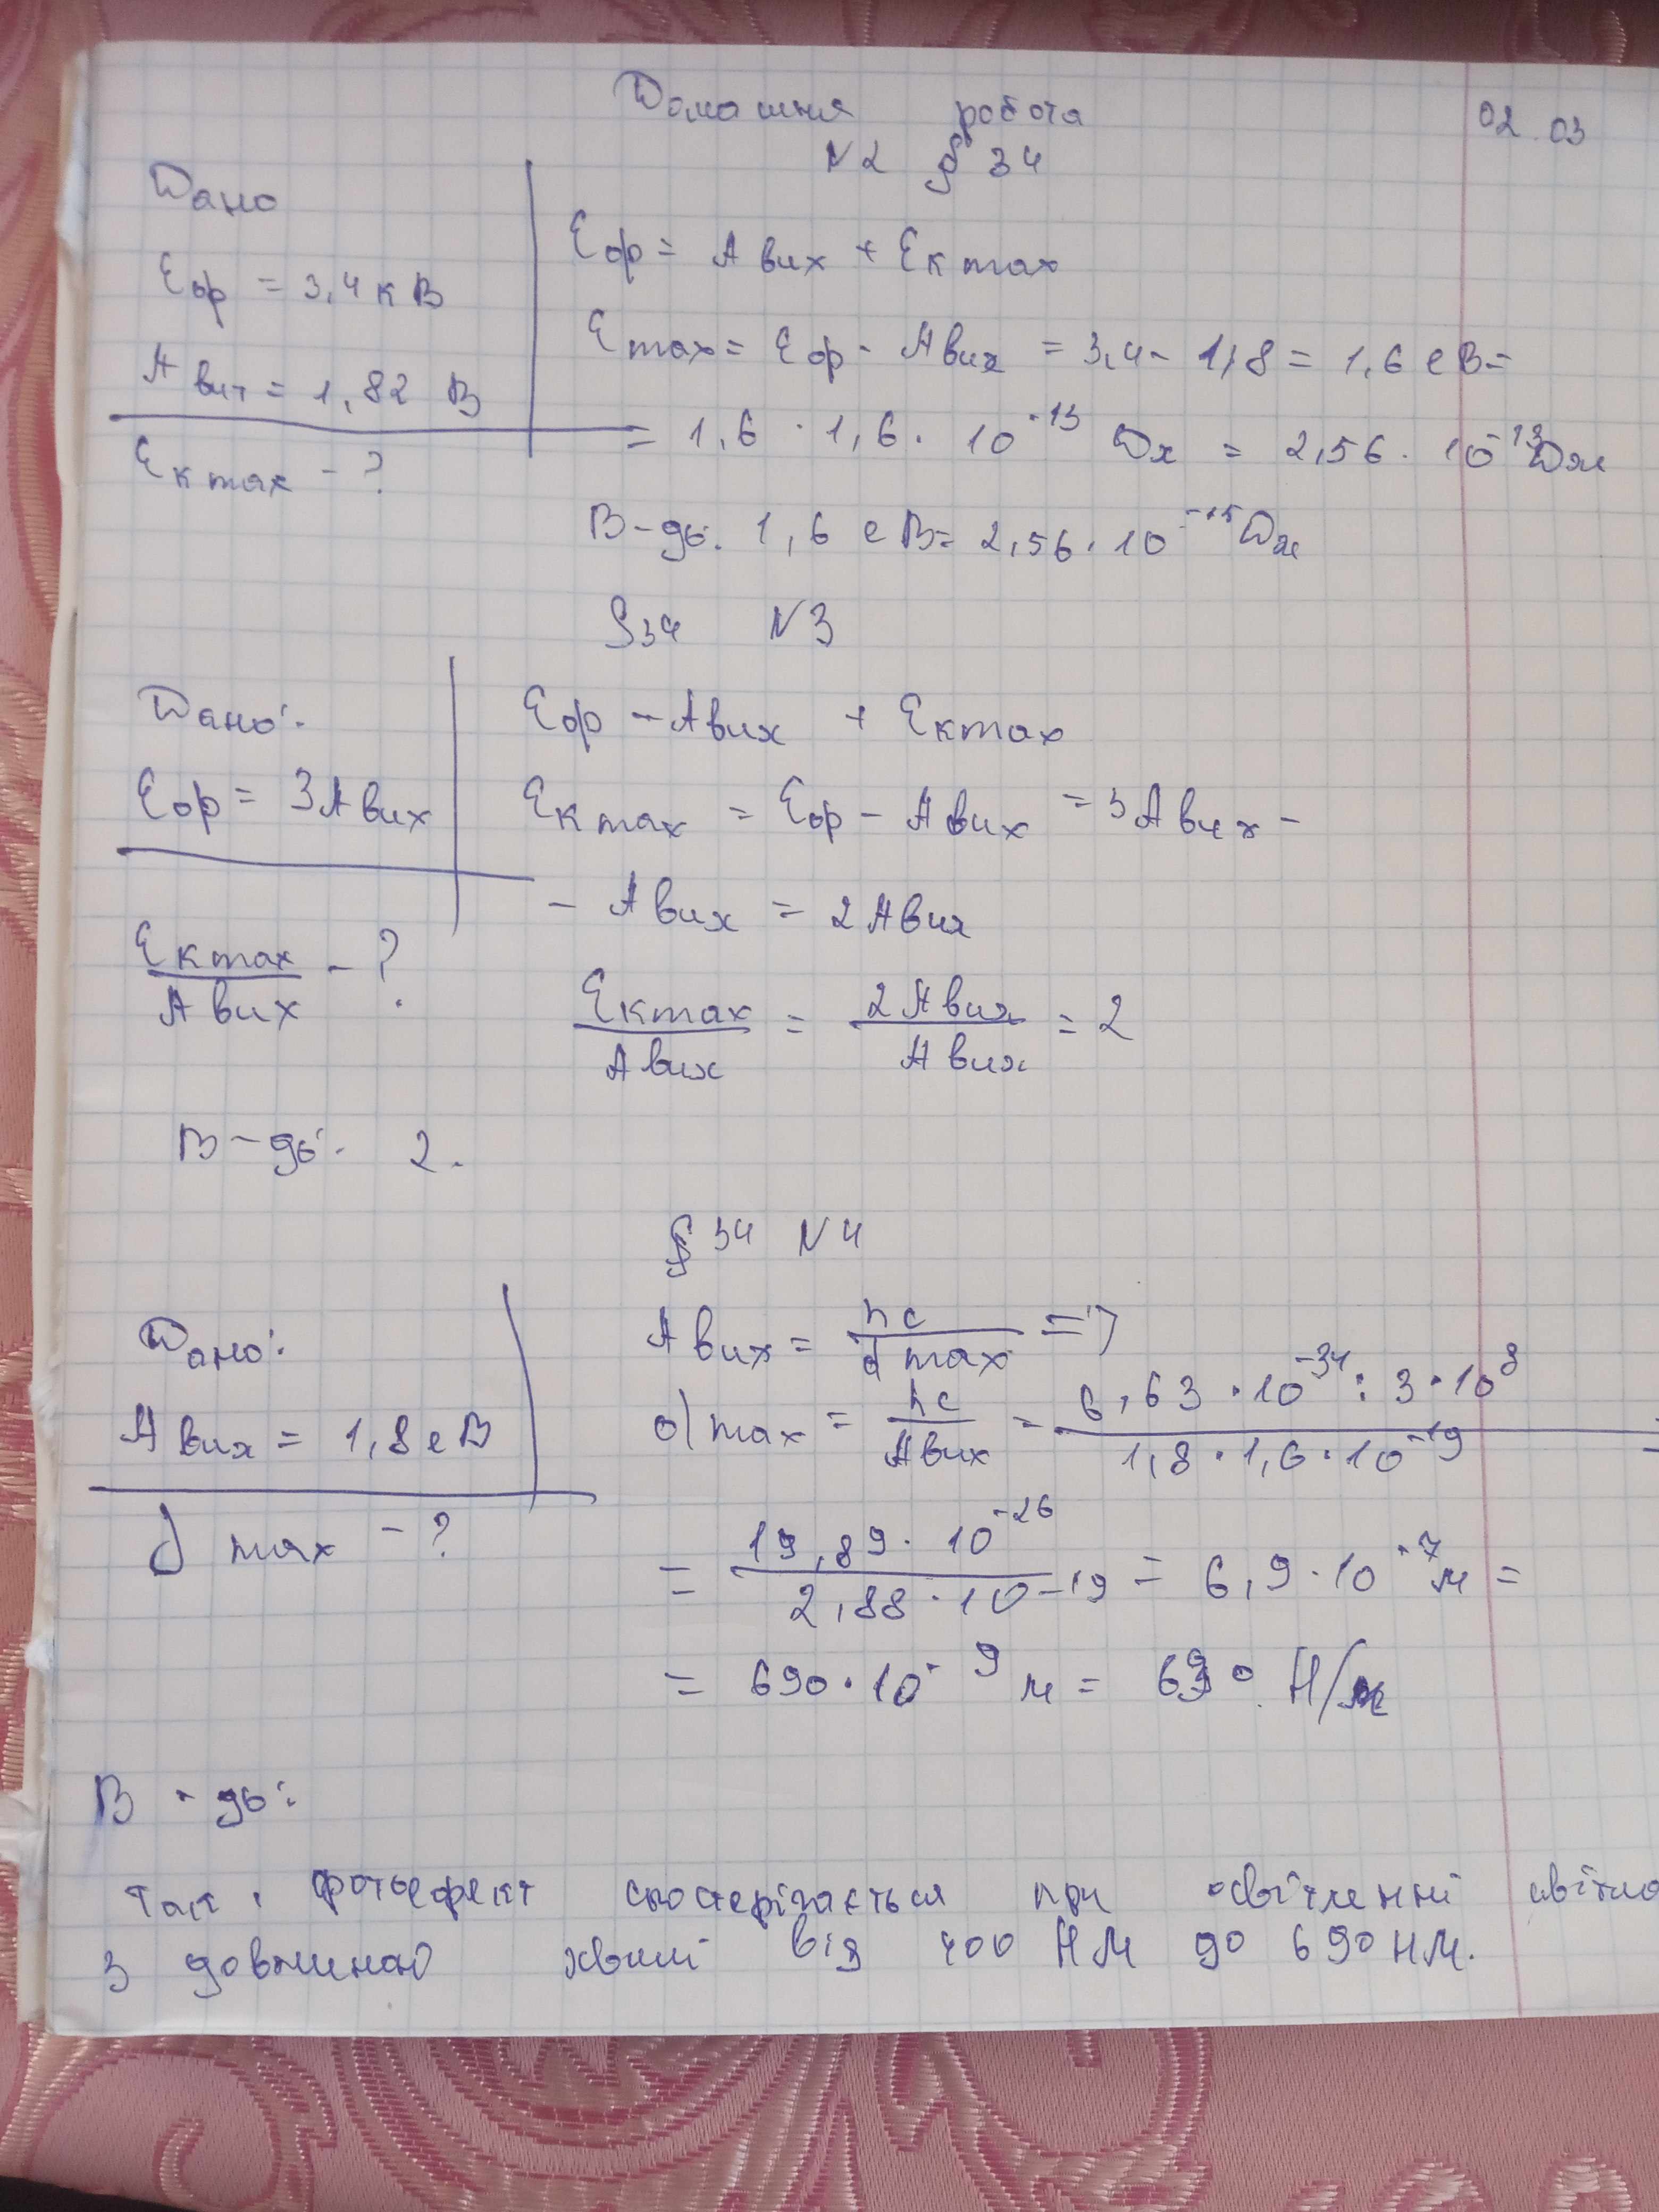 Домашня робота 02.03
N2 § 34
Дано
Eф = 3,4 к В
Aвит = 1,82 В
Eк max - ?
Eф = A вих + Eк max
E max = Eф - A вих = 3,4 - 1,8 = 1,6 еВ =
= 1,6 · 1,6 · 10^-13 Дж = 2,56 · 10^-13 Дж
В-дь: 1,6 еВ = 2,56 · 10^-15 Дж
§34 N3
Дано:
Eф = 3 A вих
Eк max / A вих - ?
Eф - A вих + Eк max
Eк max = Eф - A вих = 3 A вих -
- A вих = 2 A вих
Eк max / A вих = 2 A вих / A вих = 2
В-дь: 2.
§ 34 N4
Дано:
A вих = 1,8 еВ
d max - ?
A вих = hc / d max =>
d max = hc / A вих = 6,63 · 10^-34 : 3 · 10^8 / 1,8 · 1,6 · 10^-19 =
= 19,89 · 10^-26 / 2,88 · 10^-19 = 6,9 · 10^-7 м =
= 690 · 10^-9 м = 690 Н/м
В-дь:
Так, фотоефект спостерігається при освітленні світло
з довжиною хвилі від 400 НМ до 690 НМ.